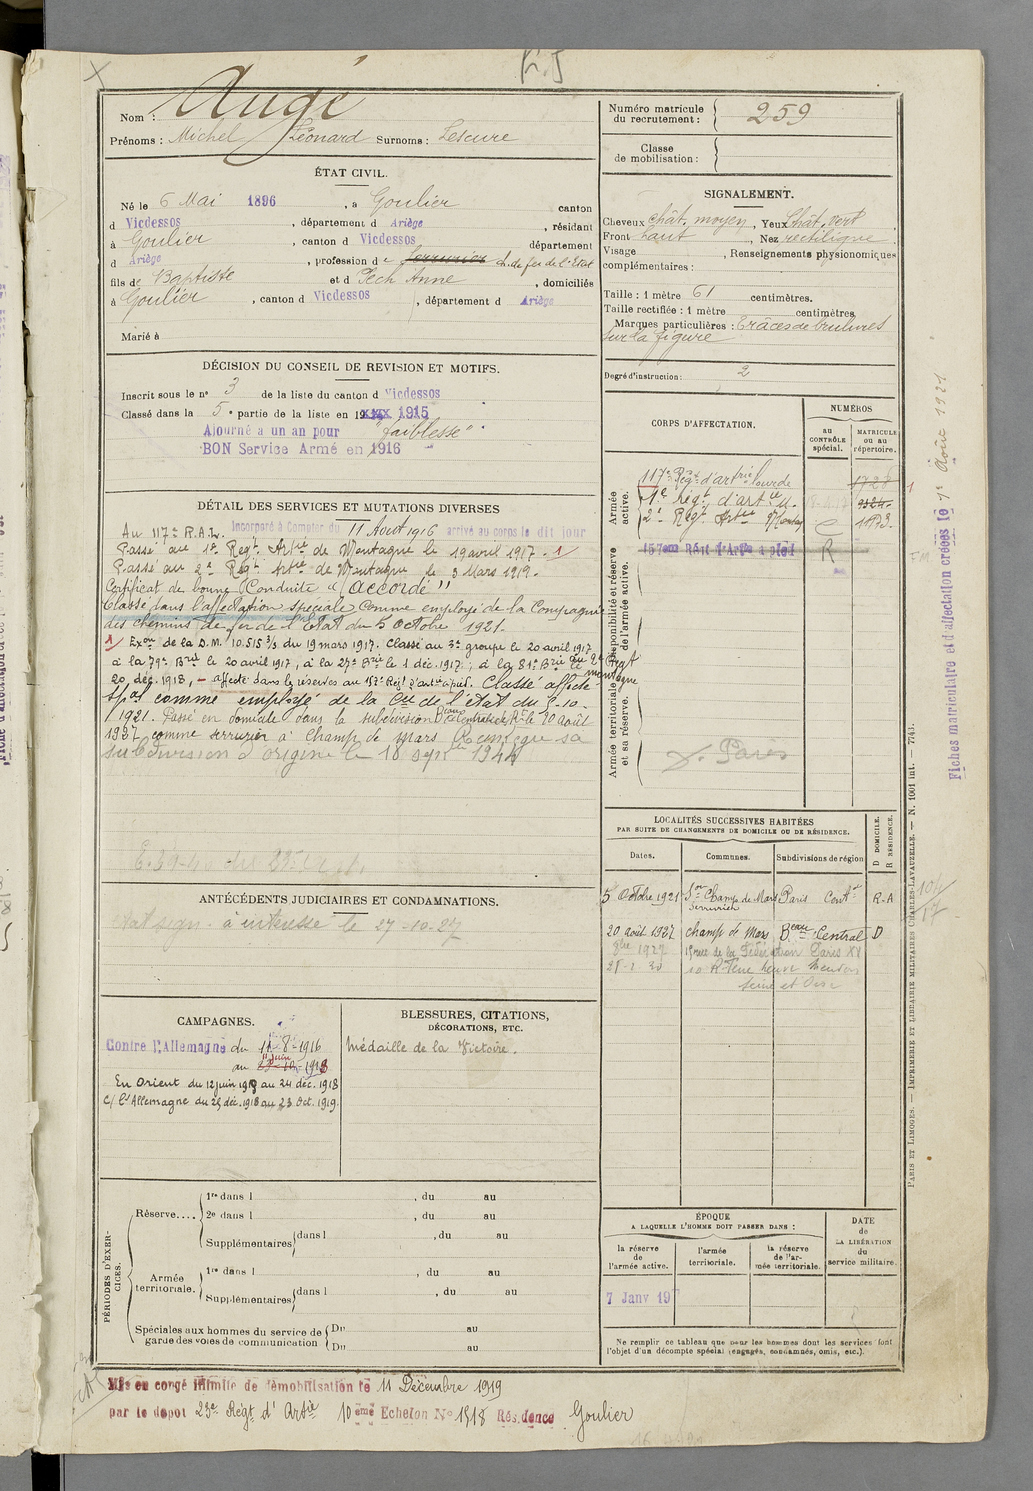 K.J
Nom : Augé
Prénoms : Michel Léonard Surnoms : Lescure
Numéro matricule du recrutement : 259
Classe de mobilisation :
ÉTAT CIVIL.
Né le 6 Mai 1896, à Goulier canton
d Vicdessos, département d Ariège, résidant
à Goulier, canton d Vicdessos département
d Ariège, profession de Serrurier ch. de fer de l'Etat
fils de Baptiste et d Pech Anne, domiciliés
à Goulier, canton d Vicdessos, département d Ariège
Marié à
SIGNALEMENT.
Cheveux chât. moyen, Yeux chât. vert
Front haut, Nez rectiligne
Visage, Renseignements physionomiques
complémentaires :
Taille : 1 mètre 61 centimètres.
Taille rectifiée : 1 mètre centimètres.
Marques particulières : Trâces de brulures
sur la figure
Degré d'instruction : 2
DÉCISION DU CONSEIL DE REVISION ET MOTIFS.
Inscrit sous le n° 3 de la liste du canton d Vicdessos
Classé dans la 5e partie de la liste en 1915
Ajourné a un an pour "faiblesse"
BON Service Armé en 1916
DÉTAIL DES SERVICES ET MUTATIONS DIVERSES
Incorporé à Compter du 11 Août 1916 arrivé au corps le dit jour
Au 117e R.A.L.
Passé au 1er Regt. Artie de Montagne le 19 avril 1917. 1/
Passé au 2e Regt Artie de Montagne le 3 Mars 1919.
Certificat de bonne Conduite "Accordé"
Classé dans l'affectation spéciale comme employé de la Compagnie
des chemins de fer de l'Etat du 5 Octobre 1921.
1/ Exon de la D.M. 10.515 3/3 du 19 mars 1917. Classé au 3e groupe le 20 avril 1917
à la 79e Brie le 20 avril 1917, à la 27e Brie le 1 déc. 1917; à la 81e Brie du 2e Regt montagne le
20 déc. 1918, - affecté dans la réserve au 157e Regt d'artie à pied. Classé affecté
spal comme employé de la Cie de l'état du 5-10-
1921. Passé en domicile dans la subdivision Beau Central de R. le 20 août
1927 comme serrurier à Champ de Mars Réintègre sa
subdivision d'origine le 18 sept 1944
CORPS D'AFFECTATION.
NUMÉROS
au CONTRÔLE spécial.
MATRICULE ou au répertoire.
Armée active.
117e Régt d'artrie lourde 1728
1e régt d'artie M. 9124
2e Régt Artie Montag 11123
Disponibilité et réserve de l'armée active.
157eme Régt d'Artie à pied R
Armée territoriale et sa réserve.
x. Paris
LOCALITÉS SUCCESSIVES HABITÉES
PAR SUITE DE CHANGEMENTS DE DOMICILE OU DE RÉSIDENCE.
Dates.
Communes.
Subdivisions de région
D DOMICILE.
R RÉSIDENCE.
5 Octobre 1921 Champ de Mars Paris Cent R.A
serrurier
20 août 1927 Champ de Mars Beau Central D
15 rue de la Fédération Paris XV
Meudon
Seine et Oise
ANTÉCÉDENTS JUDICIAIRES ET CONDAMNATIONS.
Etat sign. à interesse le 27-10-27
CAMPAGNES.
Contre l'Allemagne du 11-8-1916
au 11 juin 1918
En Orient du 12 juin 1918 au 24 déc. 1918
c/ l'Allemagne du 25 déc. 1918 au 23 Oct. 1919.
BLESSURES, CITATIONS,
DÉCORATIONS, ETC.
Médaille de la Victoire.
PÉRIODES D'EXERCICES.
Réserve....
1re dans l, du au
2e dans l, du au
Supplémentaires dans l, du au
Armée territoriale.
1re dans l, du au
Supplémentaires dans l, du au
Spéciales aux hommes du service de garde des voies de communication
Du au
Du au
ÉPOQUE
A LAQUELLE L'HOMME DOIT PASSER DANS :
la réserve de l'armée active.
l'armée territoriale.
la réserve de l'armée territoriale.
DATE de LA LIBÉRATION du service militaire.
7 Janv 19
Ne remplir ce tableau que pour les hommes dont les services font
l'objet d'un décompte spécial (engagés, condamnés, omis, etc.).
Mis en congé illimité de démobilisation le 11 Décembre 1919
par le depot 23e Régt d'Artie 10eme Echelon N° 1518 Résidence Goulier
PARIS ET LIMOGES. — IMPRIMERIE ET LIBRAIRIE MILITAIRES CHARLES-LAVAUZELLE. — N. 1001 int. — 7743.
Fiches matriculaire et d'affectation créées le 1er Août 1921